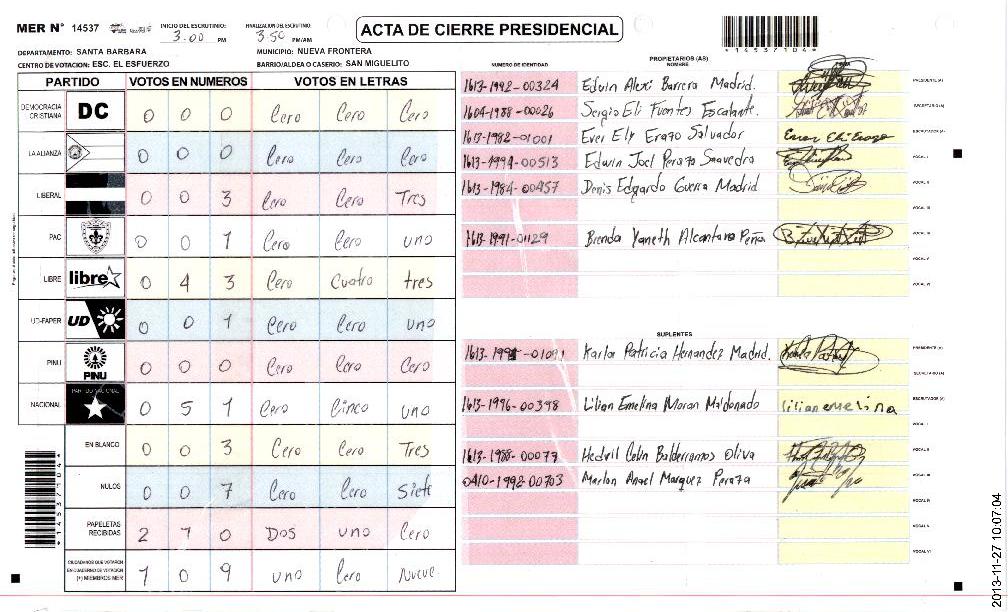 MER N° 14537 INICIO DEL ESCRUTINIO: 3.00 PM FINALIZACION DEL ESCRUTINIO: 3.50 PM/AM
ACTA DE CIERRE PRESIDENCIAL
*14537104*
DEPARTAMENTO: SANTA BARBARA MUNICIPIO: NUEVA FRONTERA
CENTRO DE VOTACION: ESC. EL ESFUERZO BARRIO/ALDEA O CASERIO: SAN MIGUELITO
PARTIDO VOTOS EN NUMEROS VOTOS EN LETRAS
DEMOCRACIA CRISTIANA DC 0 0 0 Cero Cero Cero
LA ALIANZA 0 0 0 Cero Cero Cero
LIBERAL 0 0 3 Cero Cero Tres
PAC 0 0 1 Cero Cero uno
LIBRE libre 0 4 3 Cero Cuatro tres
UD-FAPER UD 0 0 1 Cero Cero uno
PINU PINU 0 0 0 Cero Cero Cero
NACIONAL PARTIDO NACIONAL 0 5 1 Cero Cinco uno
EN BLANCO 0 0 3 Cero Cero Tres
NULOS 0 0 7 Cero Cero Siete
PAPELETAS RECIBIDAS 2 1 0 Dos uno Cero
CIUDADANOS QUE VOTARON EN CUADERNO DE VOTACION (+) MIEMBROS MER 1 0 9 uno Cero Nueve
*14537104*
PROPIETARIOS (AS)
NUMERO DE IDENTIDAD NOMBRE
1613-1992-00324 Edwin Alexi Barrera Madrid. PRESIDENTE (A)
1604-1988-00026 Sergio Eli Fuentes Escalante. SECRETARIO (A)
1613-1982-01001 Ever Ely Erazo Salvador ESCRUTADOR (A)
1613-1994-00513 Edwin Joel Peraza Saavedra VOCAL I
1613-1984-00457 Denis Edgardo Guerra Madrid VOCAL II
VOCAL III
1613-1991-01129 Brenda Yaneth Alcantara Peña VOCAL IV
VOCAL V
VOCAL VI
SUPLENTES
Karla Patricia Hernandez Madrid. PRESIDENTE (A)
SECRETARIO (A)
1613-1996-00398 Lilian Emelina Moran Maldonado lilian emelina ESCRUTADOR (A)
VOCAL I
1613-1988-00077 Oliva VOCAL II
0410-1992-00703 Marlon Anael Marquez Peraza VOCAL III
VOCAL IV
VOCAL V
VOCAL VI
2013-11-27 10:07:04